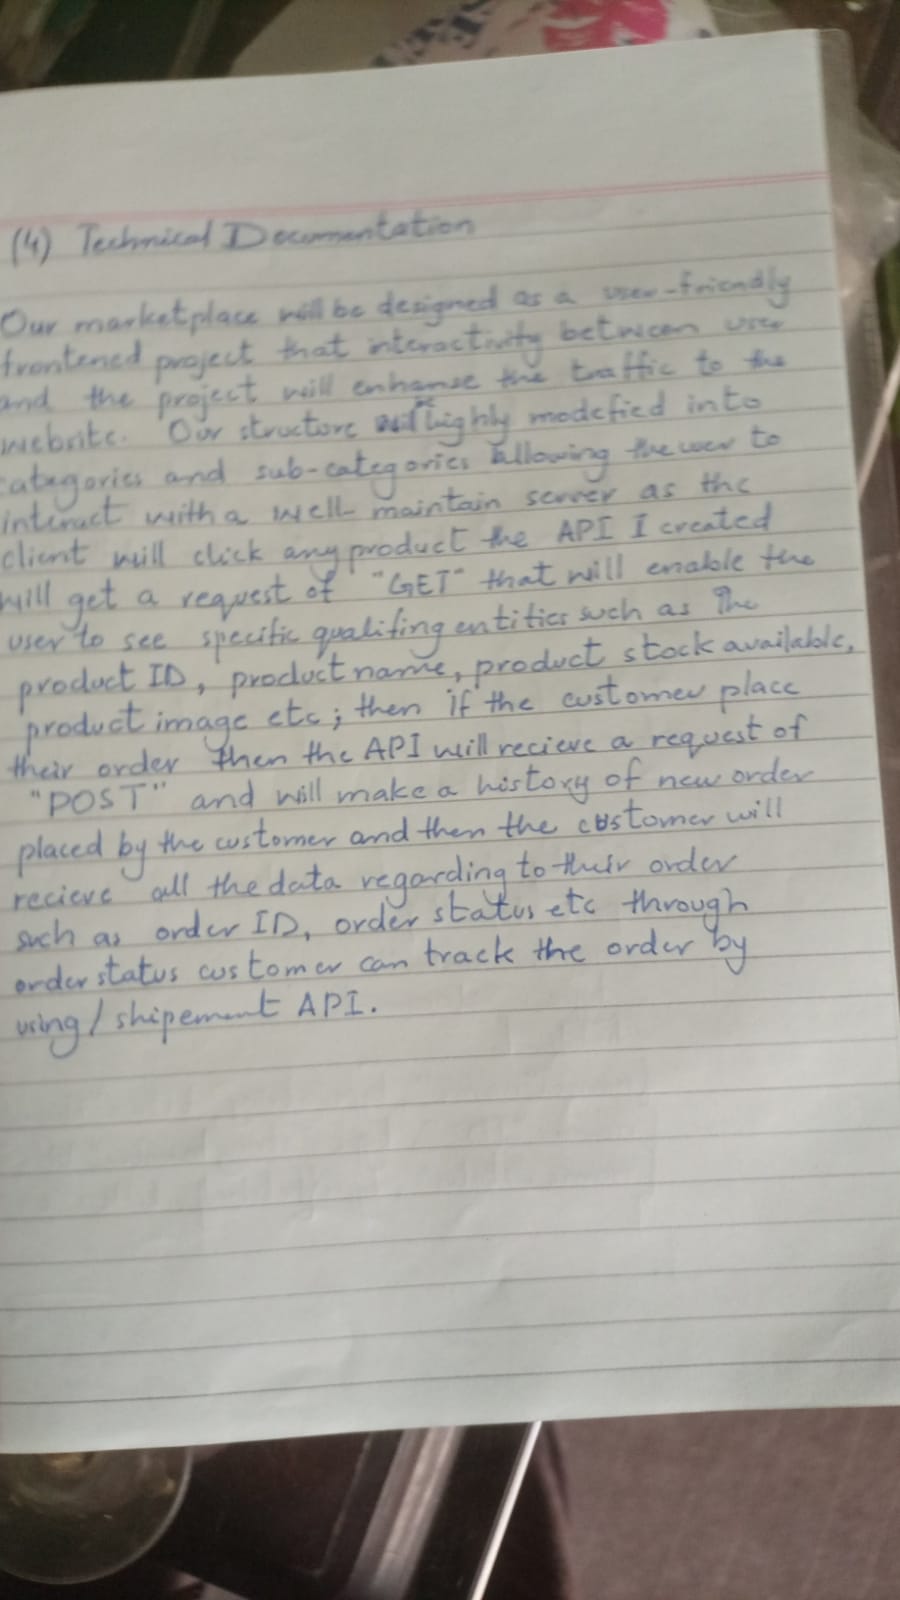 (4) Technical Documentation
Our marketplace will be designed as a user-friendly
frontened project that interactivity between user
and the project will enhanse the traffic to the
website. Our structure will be highly modefied into
categories and sub-categories allowing the user to
interact with a well-maintain server as the
client will click any product the API I created
will get a request of "GET" that will enable the
user to see specific qualifing entities such as the
product ID, product name, product stock available,
product image etc; then if the customer place
their order then the API will recieve a request of
"POST" and will make a history of new order
placed by the customer and then the customer will
recieve all the data regarding to their order
such as order ID, order status etc through
order status customer can track the order by
using / shipement API.